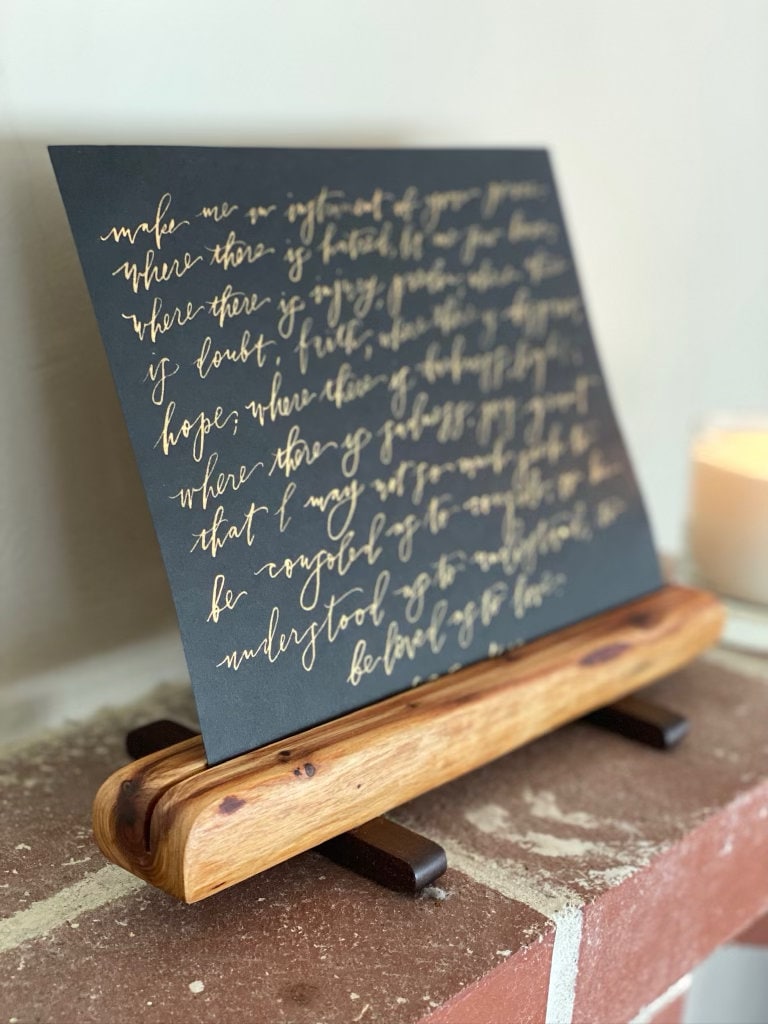 make me an instrument of your peace
where there is hatred, let me sow love;
where there is injury, pardon; where there
is doubt, faith; where there is despair,
hope; where there is darkness, light;
where there is sadness, joy. grant
that I may not so much seek to
be consoled as to console; to be
understood as to understand; to
be loved as to love.